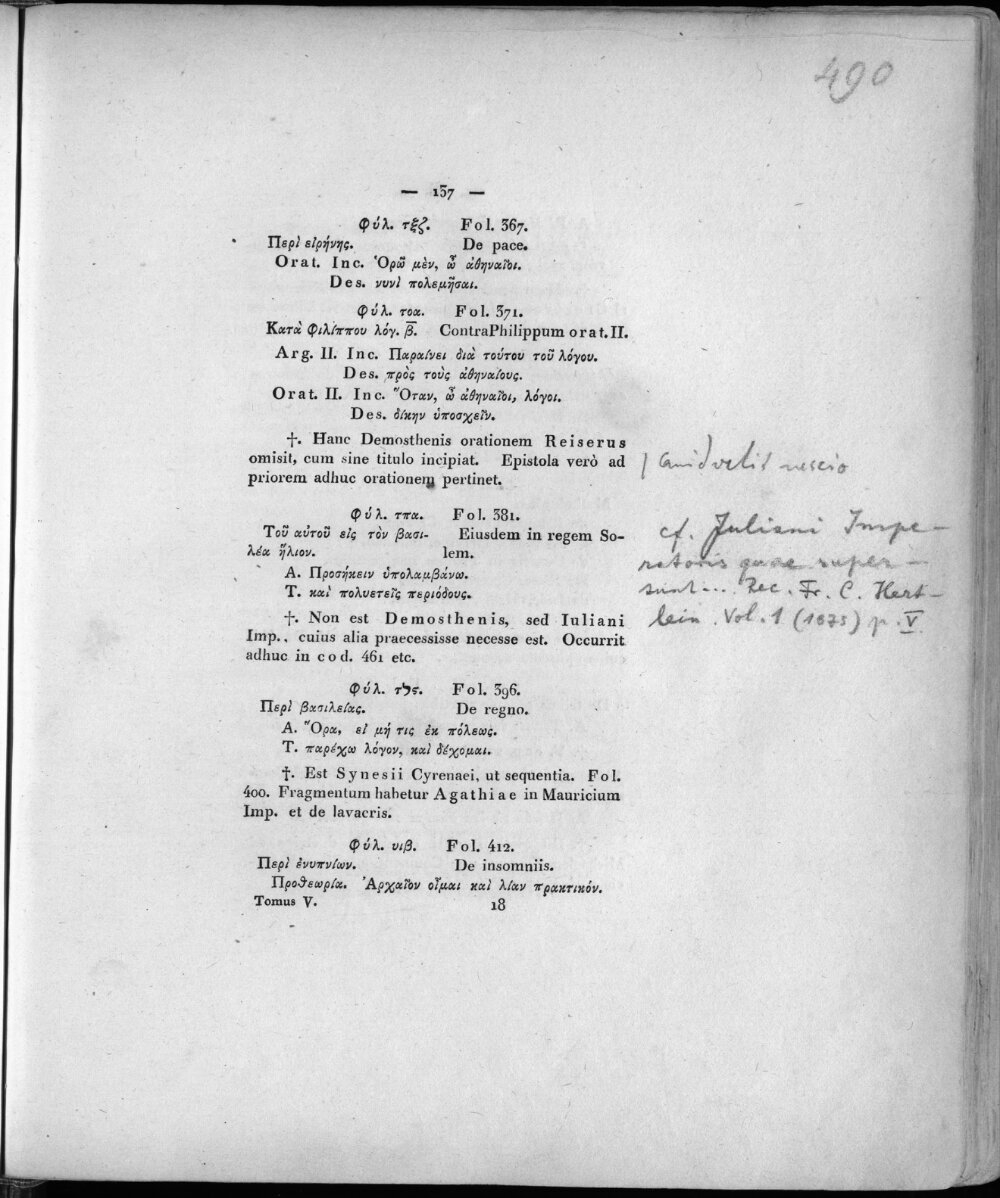 490
— 137 —
Φύλ. τξζ. Fol. 367.
Περὶ εἰρήνης. De pace.
Orat. Inc. Ὁρῶ μὲν, ὦ ἀθηναῖοι.
Des. νυνὶ πολεμῆσαι.
Φύλ. τοα. Fol. 371.
Κατὰ φιλίππου λόγ. β̅. Contra Philippum orat. II.
Arg. II. Inc. Παραίνει διὰ τούτου τοῦ λόγου.
Des. πρὸς τοὺς ἀθηναίους.
Orat. II. Inc. Ὅταν, ὦ ἀθηναῖοι, λόγοι.
Des. δίκην ὑποσχεῖν.
†. Hanc Demosthenis orationem Reiserus
omisit, cum sine titulo incipiat. Epistola verò ad
priorem adhuc orationem pertinet.
/ quid velit nescio
Φύλ. τπα. Fol. 381.
Τοῦ αὐτοῦ εἰς τὸν βασι- Eiusdem in regem So-
λέα ἥλιον. lem.
Α. Προσήκειν ὑπολαμβάνω.
Τ. καὶ πολυετεῖς περιόδους.
†. Non est Demosthenis, sed Iuliani
Imp., cuius alia praecessisse necesse est. Occurrit
adhuc in cod. 461 etc.
cf. Juliani Impe-
ratoris quae super-
sunt... Rec. Fr. C. Hert-
lein. Vol. 1 (1875) p. V
Φύλ. τϟς. Fol. 396.
Περὶ βασιλείας. De regno.
Α. Ὅρα, εἰ μή τις ἐκ πόλεως.
Τ. παρέχω λόγον, καὶ δέχομαι.
†. Est Synesii Cyrenaei, ut sequentia. Fol.
400. Fragmentum habetur Agathiae in Mauricium
Imp. et de lavacris.
Φύλ. υιβ. Fol. 412.
Περὶ ἐνυπνίων. De insomniis.
Προθεωρία. Ἀρχαῖον οἶμαι καὶ λίαν πρακτικόν.
Tomus V. 18